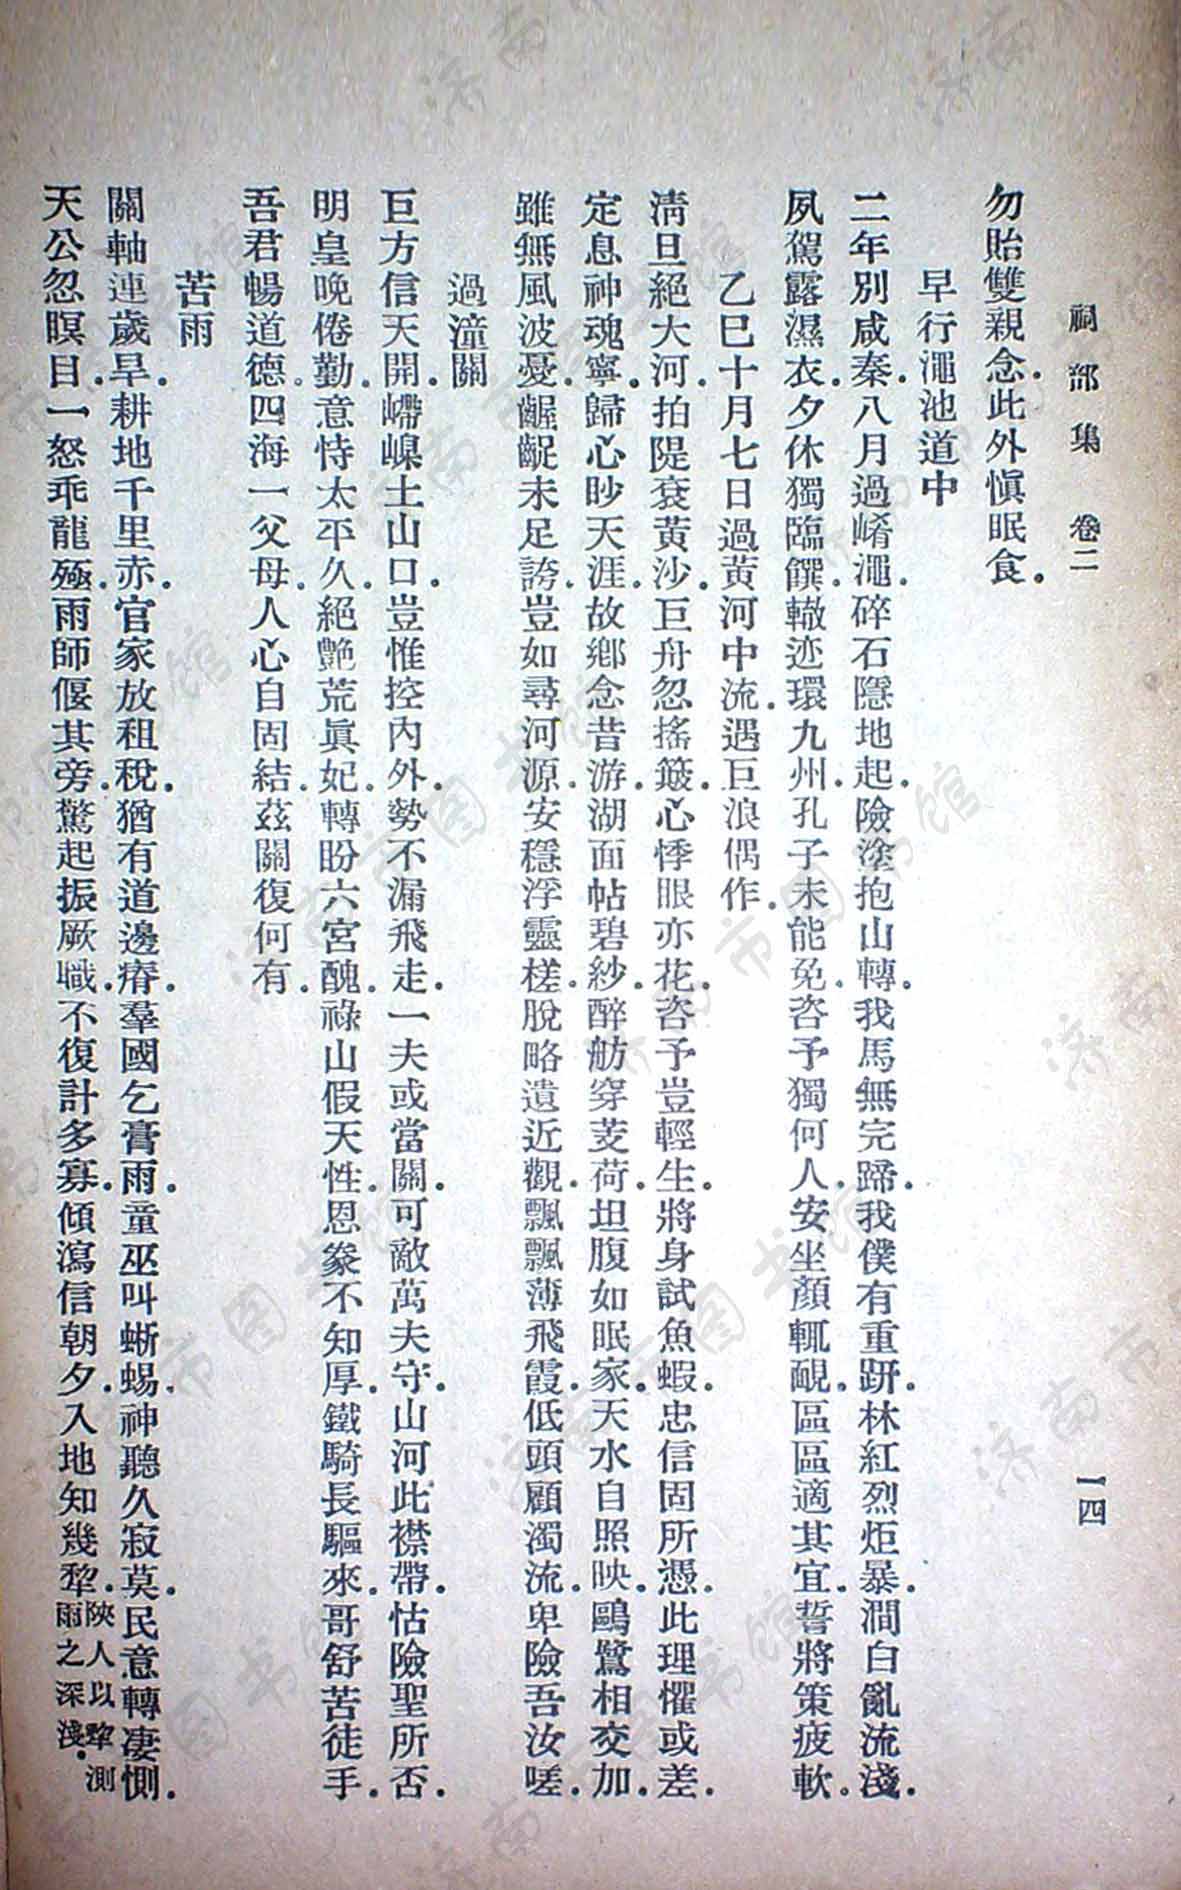 祠部集　卷二　一四
勿貽雙親念.此外愼眠食.
早行澠池道中
二年別咸秦.八月過崤澠.碎石隱地起.險塗抱山轉.我馬無完蹄.我僕有重趼.林紅烈炬暴.澗白亂流淺.
夙駕露濕衣.夕休獨臨饌.轍迹環九州.孔子未能免.咨予獨何人.安坐顏輒䩄.區區適其宜.誓將策疲軟.
乙巳十月七日過黃河中流.遇巨浪偶作.
淸旦絕大河.拍隄袞黃沙.巨舟忽搖簸.心悸眼亦花.咨予豈輕生.將身試魚蝦.忠信固所憑.此理懼或差.
定息神魂寧.歸心眇天涯.故鄕念昔游.湖面帖碧紗.醉舫穿芰荷.坦腹如眠家.天水自照映.鷗鷺相交加.
雖無風波憂.齷齪未足誇.豈如尋河源.安穩浮靈槎.脫略遺近觀.飄飄薄飛霞.低頭顧濁流.卑險吾汝嗟.
過潼關
巨方信天開.嶆嵲土山口.豈惟控內外.勢不漏飛走.一夫或當關.可敵萬夫守.山河此襟帶.怙險聖所否.
明皇晚倦勤.意恃太平久.絕艷荒眞妃.轉盼六宮醜.祿山假天性.恩豢不知厚.鐵騎長驅來.哥舒苦徒手.
吾君暢道德.四海一父母.人心自固結.茲關復何有.
苦雨
關軸連歲旱.耕地千里赤.官家放租稅.猶有道邊瘠.羣國乞膏雨.童巫叫蜥蜴.神聽久寂莫.民意轉凄惻.
天公忽瞑目.一怒乖龍殛.雨師偃其旁.驚起振厥職.不復計多寡.傾瀉信朝夕.入地知幾犂.陝人以犂測雨之深淺.